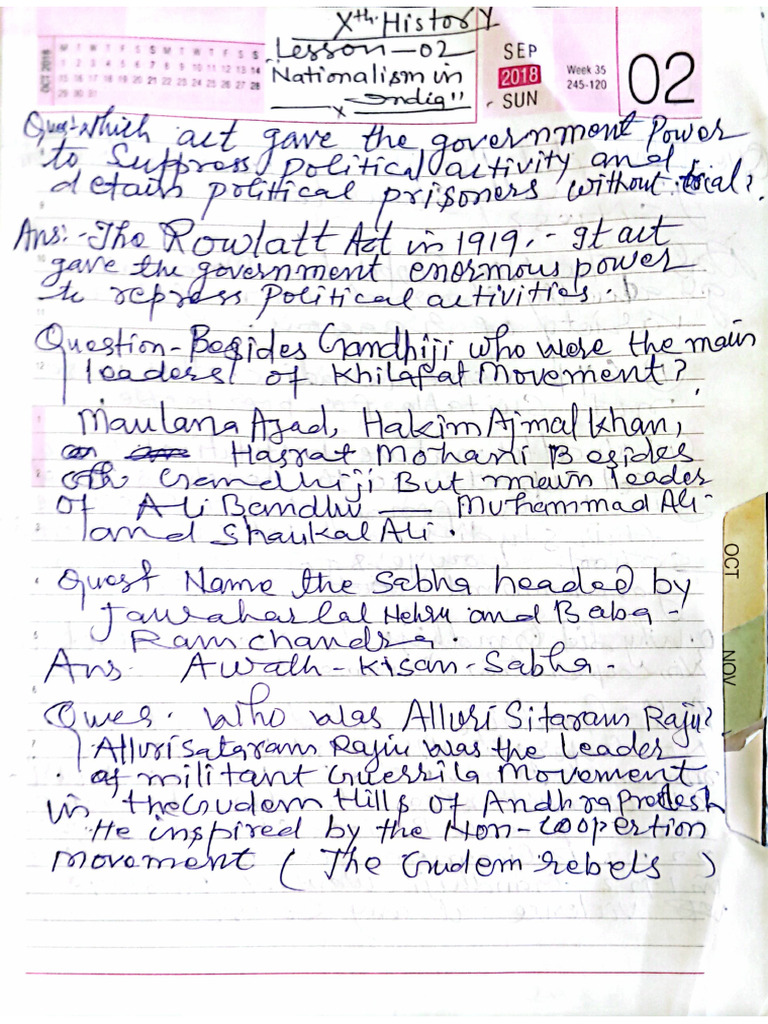 Xth History
Lesson-02
Nationalism in
India"
x
OCT 2018
M T W T F S S M T W T F S S
1 2 3 4 5 6 7 8 9 10 11 12 13 14
15 16 17 18 19 20 21 22 23 24 25 26 27 28
29 30 31
SEP
2018
SUN
Week 35
245-120
02
Ques:- Which act gave the government Power
to Suppress political activity and
detain political prisoners without trial?
Ans:- The Rowlatt Act in 1919.- It act
gave the government enormous power
to repress Political activities.
Question- Besides Gandhiji who were the main
leaders of Khilafat Movement?
Maulana Azad, Hakim Ajmal Khan,
Hasrat Mohani Besides
Gandhiji But main leader
of Ali Bandhu — Muhammad Ali
and Shaukal Ali.
Quest Name the Sabha headed by
Jawaharlal Nehru and Baba-
Ramchandra.
Ans. Awadh-Kisan-Sabha-
Ques. Who was Alluri Sitaram Raju?
Alluri Sataram Raju was the leader
of militant Guerrila Movement
in the Gudem Hills of Andhra Pradesh
He inspired by the Non-Coopertion
Movement ( The Gudem rebels )
OCT
NOV